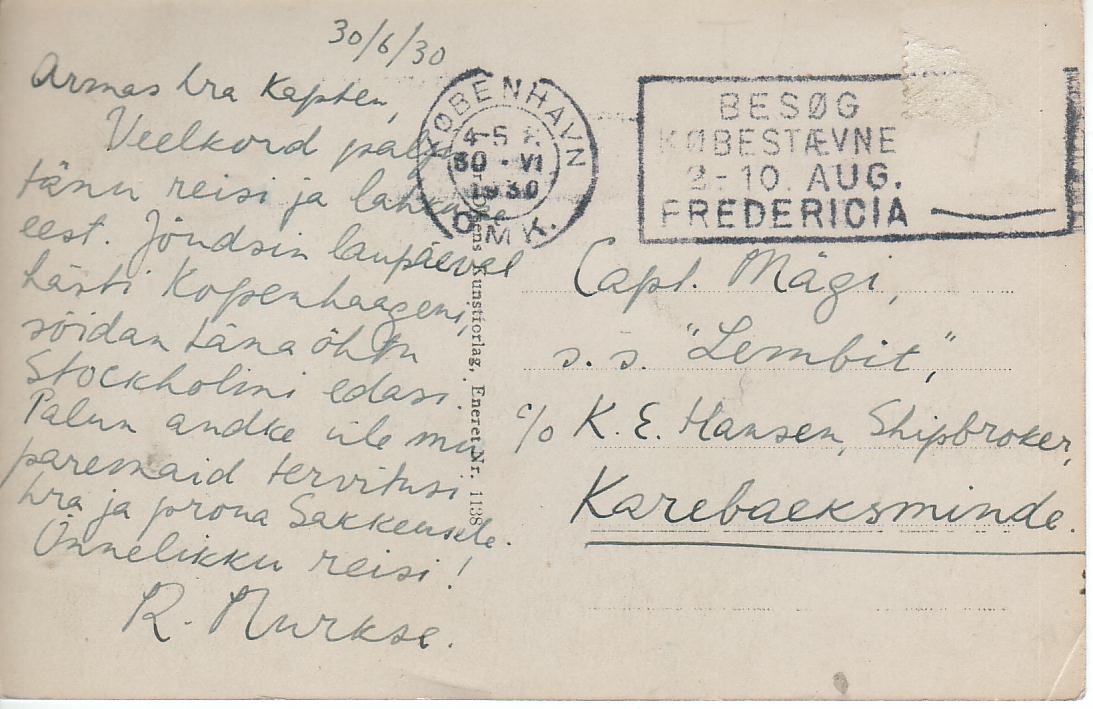 30/6/30
Armas hra Kapten,
Veelkord palju
tänu reisi ja lahkuse
eest. Jõudsin laupäeval
hästi Kopenhaageni,
sõidan täna õhtu
Stockholmi edasi.
Palun andke üle mu
paremaid tervitusi
hra ja proua Sakkeusele.
Õnnelikku reisi!
R. Nurkse.
KØBENHAVN
4-5
30 · VI
1930
OMK.
BESØG
KØBESTÆVNE
2-10. AUG.
FREDERICIA
Kunstforlag, Eneret Nr. 1138
Capt. Mägi,
s.s. "Lembit,"
c/o K. E. Hansen, Shipbroker,
Karebaeksminde.